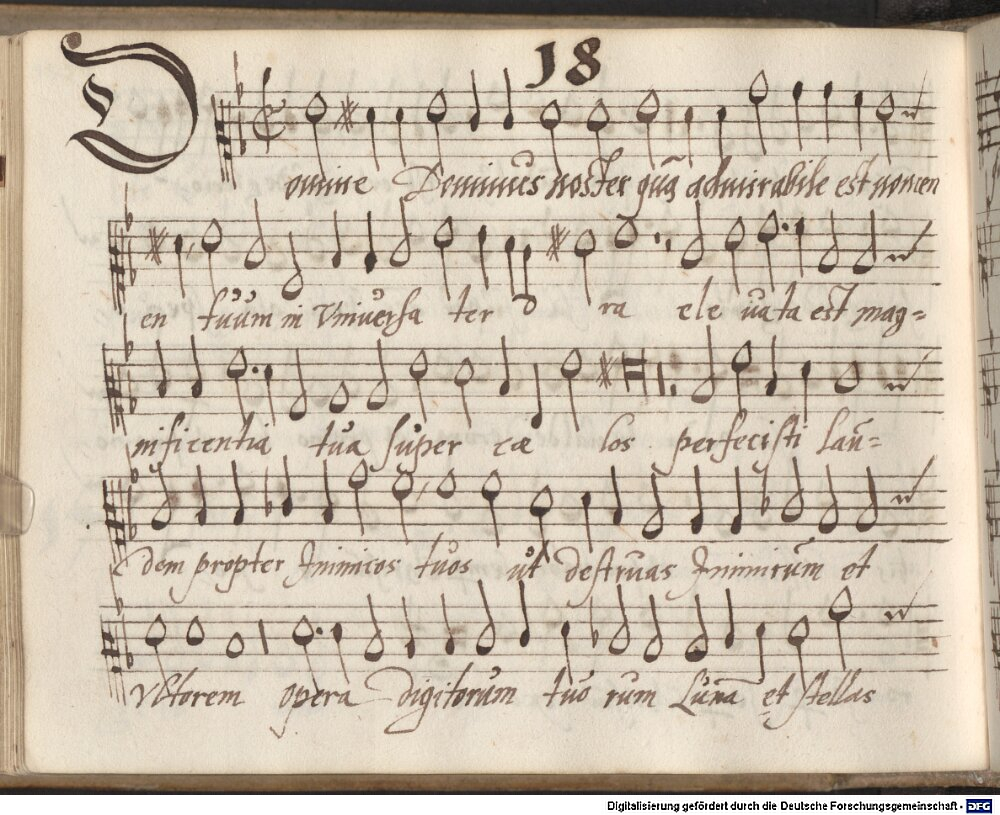 18
Domine Dominus noster quā admirabile est nomen
en tuum in Universa ter ra ele uata est mag=
nificentia tua super cæ los perfecisti lau=
dem propter Inimicos tuos ut destruas Inimicum et
Vltorem opera digitorum tuo rum Lunā et stellas
Digitalisierung gefördert durch die Deutsche Forschungsgemeinschaft - DFG